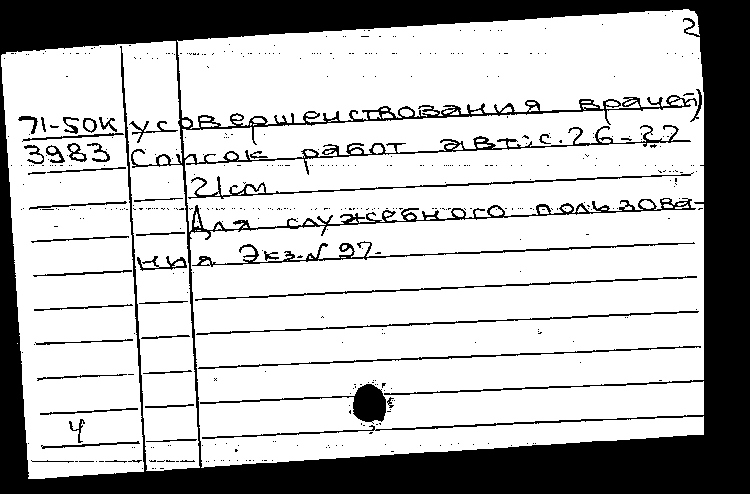 2
71-50К усовершенствования врачей)
3983 Список работ авт.: с. 26-27
21см.
Для служебного пользова-
ния Экз. N 97.
4